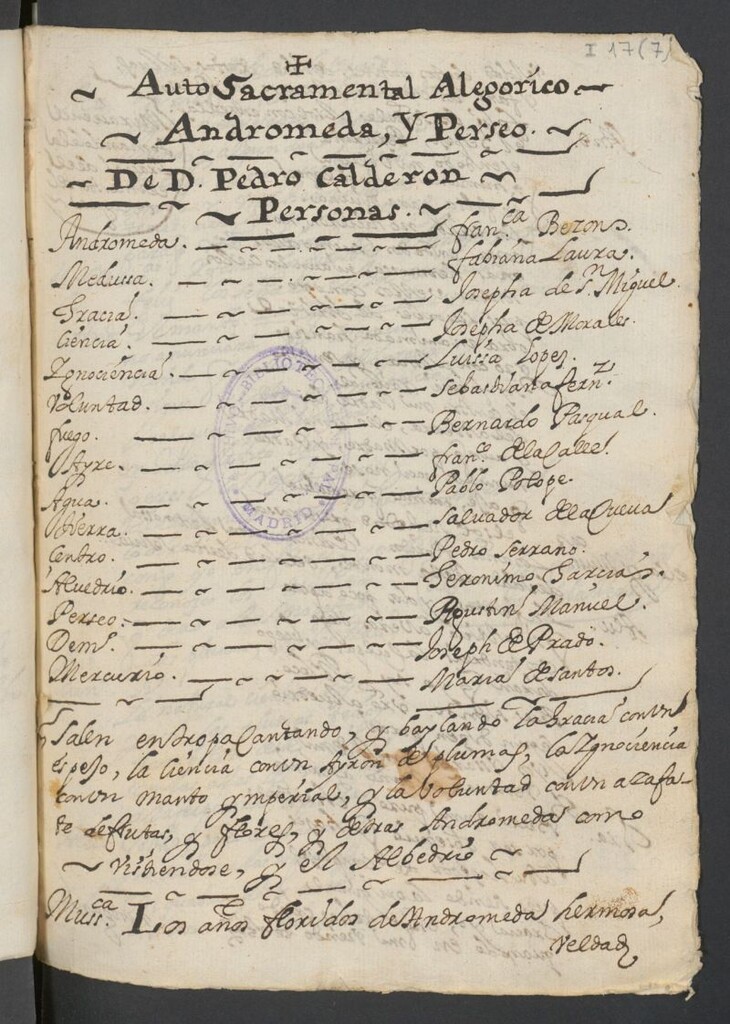 I 17(7)
Auto Sacramental Alegorico
Andromeda, Y Perseo.
De D. Pedro Calderon
Personas.
Andromeda. Fran.ca Bezon.
Medussa. Fabiana Laura.
Gracia. Josepha de S.n Miguel.
Ciencia. Josepha de Morales.
Ygnociencia. Luissa Lopez.
Voluntad. Sebastiana fern.z
fuego. Bernardo Pasqual.
Ayre. fran.co de la Calle.
Agua. Pablo Polope.
tierra. Salvador de la Cueva
Centro. Pedro Serrano.
Alvedrio. Geronimo Garcia.
Perseo. Agustin Manuel.
Dem.o Joseph de Prado.
Mercurio. Maria de santos.
Salen en tropa Cantando, y baylando la Gracia con vn
espejo, la Ciencia con vn Ayron de plumas, la Ygnociencia
con vn manto ymperial, y la Voluntad con vn azafa-
te de frutas, y flores, y detras Andromeda como
vistiendose, y el Albedrio
Muss.ca Los años floridos de Andromeda hermosa,
veldad
BIBLIOTECA
MADRID